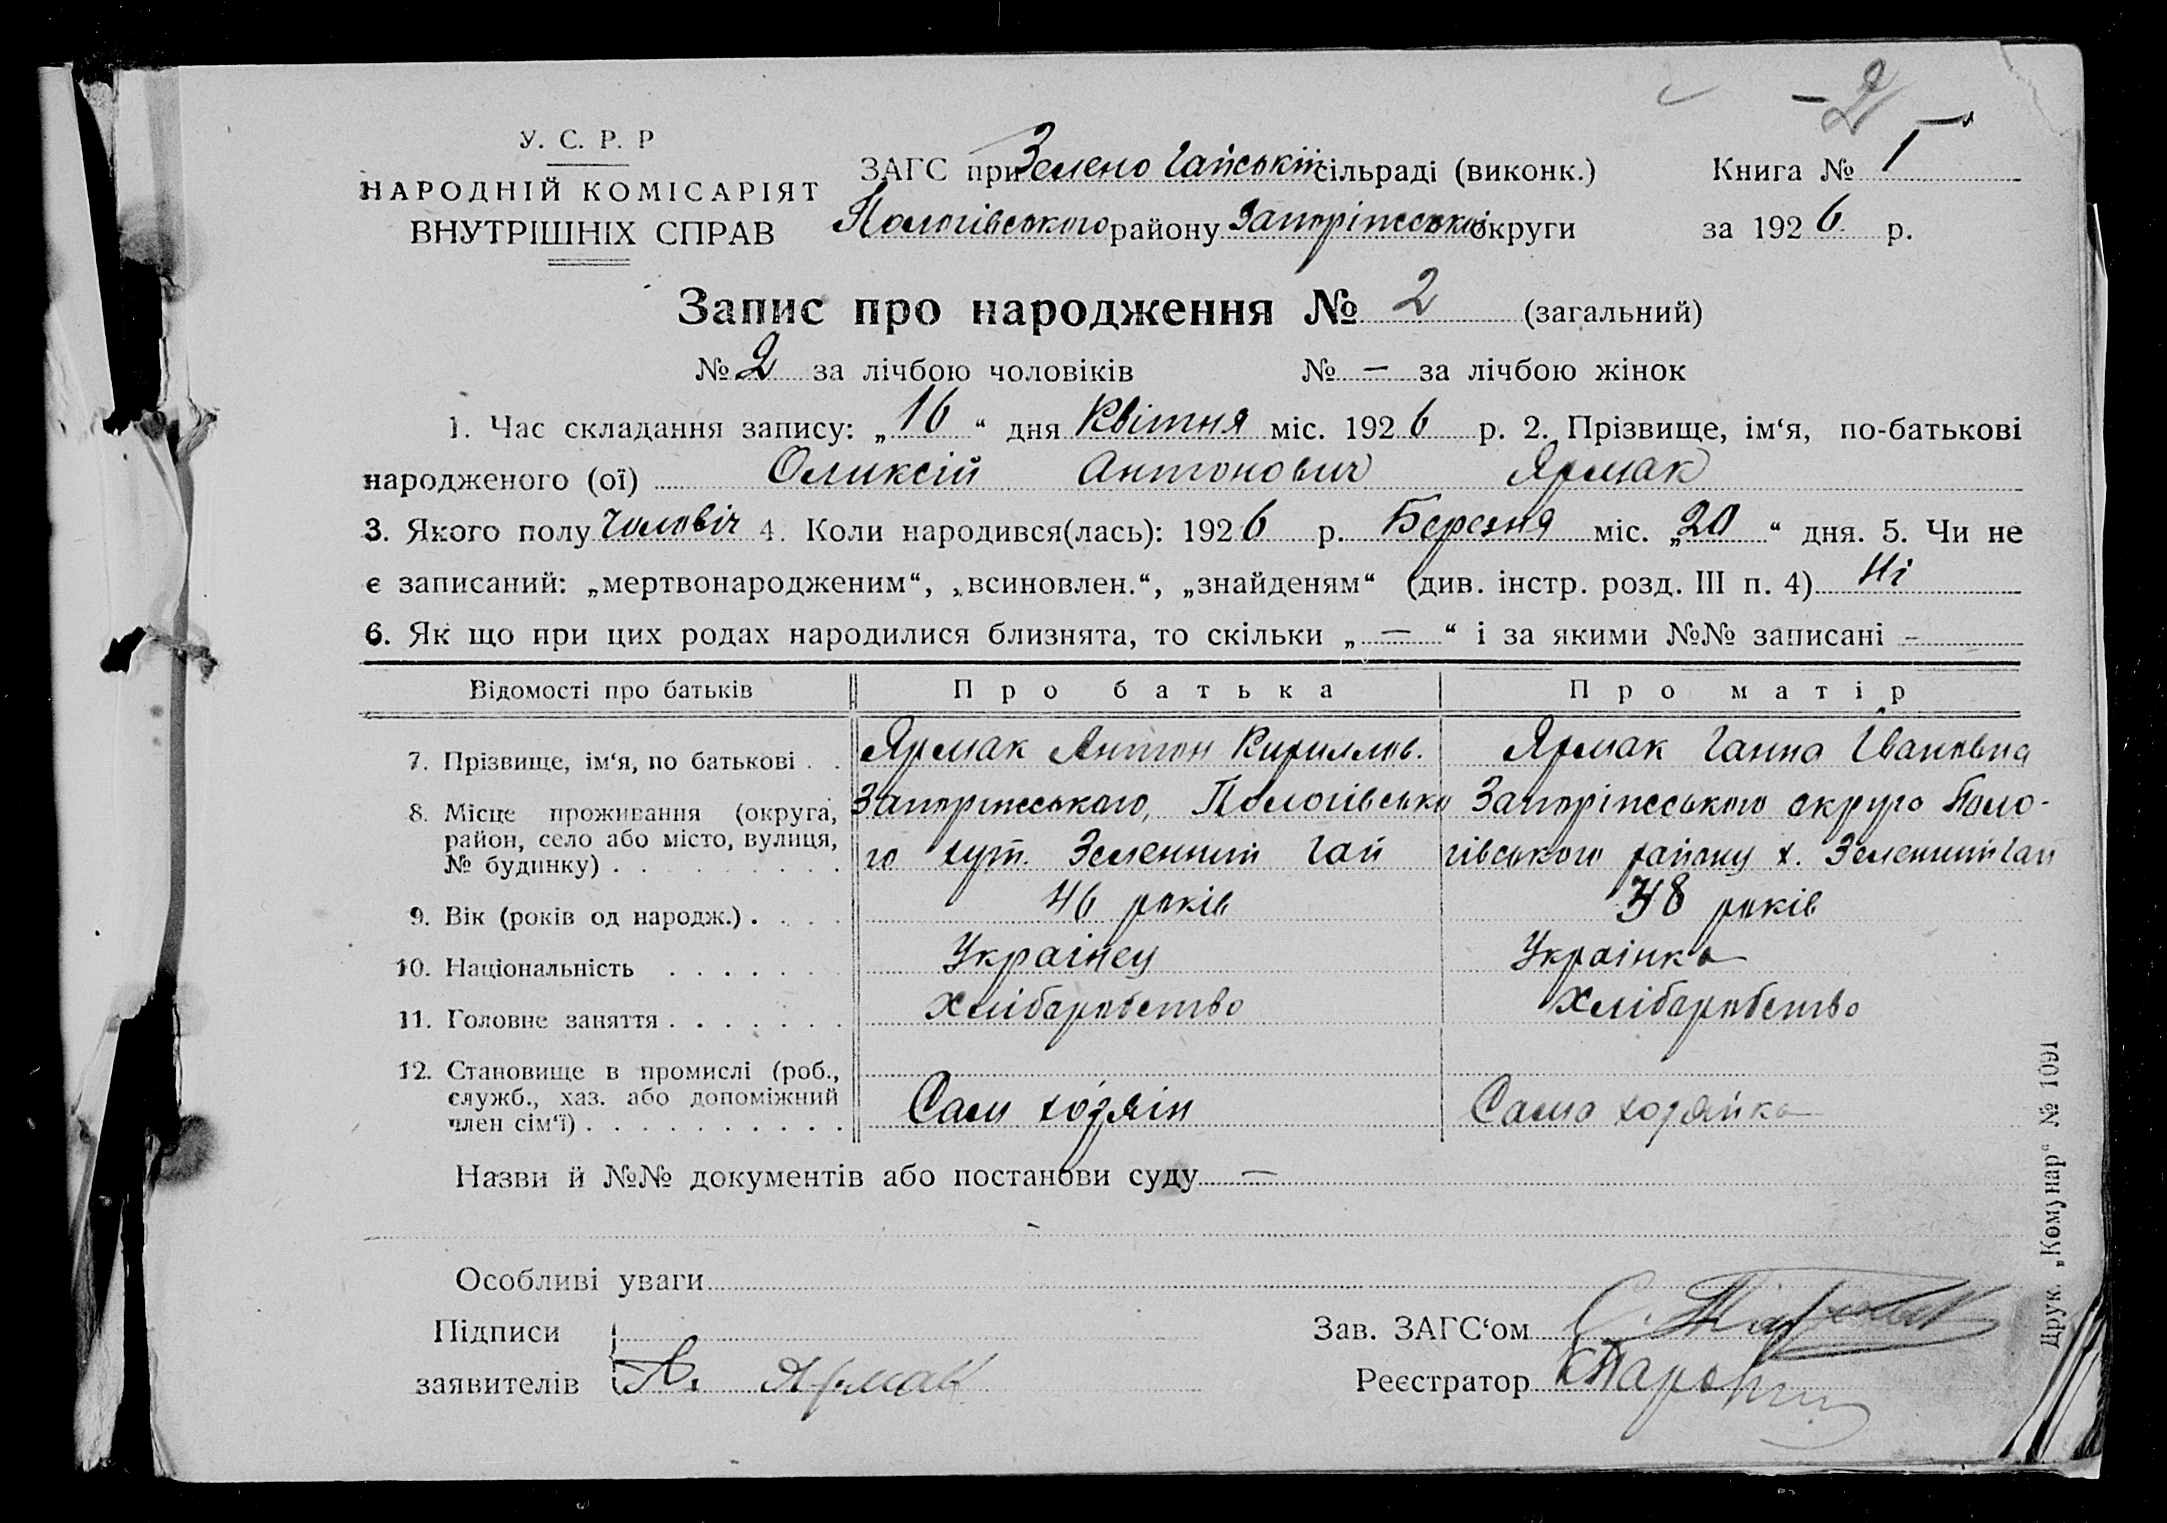 – 2
У. С. Р. Р
НАРОДНІЙ КОМІСАРІЯТ
ВНУТРІШНІХ СПРАВ
ЗАГС при Зелено Гайській сільраді (виконк.)
Книга № 1
Пологівського району Запоріжської округи
за 1926 р.
Запис про народження № 2 (загальний)
№ 2 за лічбою чоловіків № – за лічбою жінок
1. Час складання запису: „16“ дня Квітня міс. 1926 р. 2. Прізвище, ім‘я, по-батькові
народженого (ої) Оликсій Антонович Ярмак
3. Якого полу Чоловіч 4. Коли народився(лась): 1926 р. Березня міс. „20“ дня. 5. Чи не
є записаний: „мертвонародженим“, „всиновлен.“, „знайденям“ (див. інстр. розд. III п. 4) Ні
6. Як що при цих родах народилися близнята, то скільки „–“ і за якими №№ записані –
Відомості про батьків Про батька Про матір
7. Прізвище, ім‘я, по батькові . . Ярмак Антон Кириллов. Ярмак Ганна Івановна
8. Місце проживання (округа, Запоріжського, Пологівсько Запоріжського округо Поло-
район, село або місто, вулиця,
№ будинку) . . . . . . . . . го хут. Зеленний Гай гівського району х. Зеленний Гай
9. Вік (років од народж.) . . . . 46 років 48 років
10. Національність . . . . . . . Українец Українка
11. Головне заняття . . . . . . . Хліборобство Хліборобство
12. Становище в промислі (роб.,
служб., хаз. або допоміжний
член сім‘ї) . . . . . . . . . . Сам хозяін Сама хозяйка
Назви й №№ документів або постанови суду –
Особливі уваги
Підписи
заявителів А. Ярмак
Зав. ЗАГС‘ом
Реєстратор
Друк. „Комунар“ № 1091